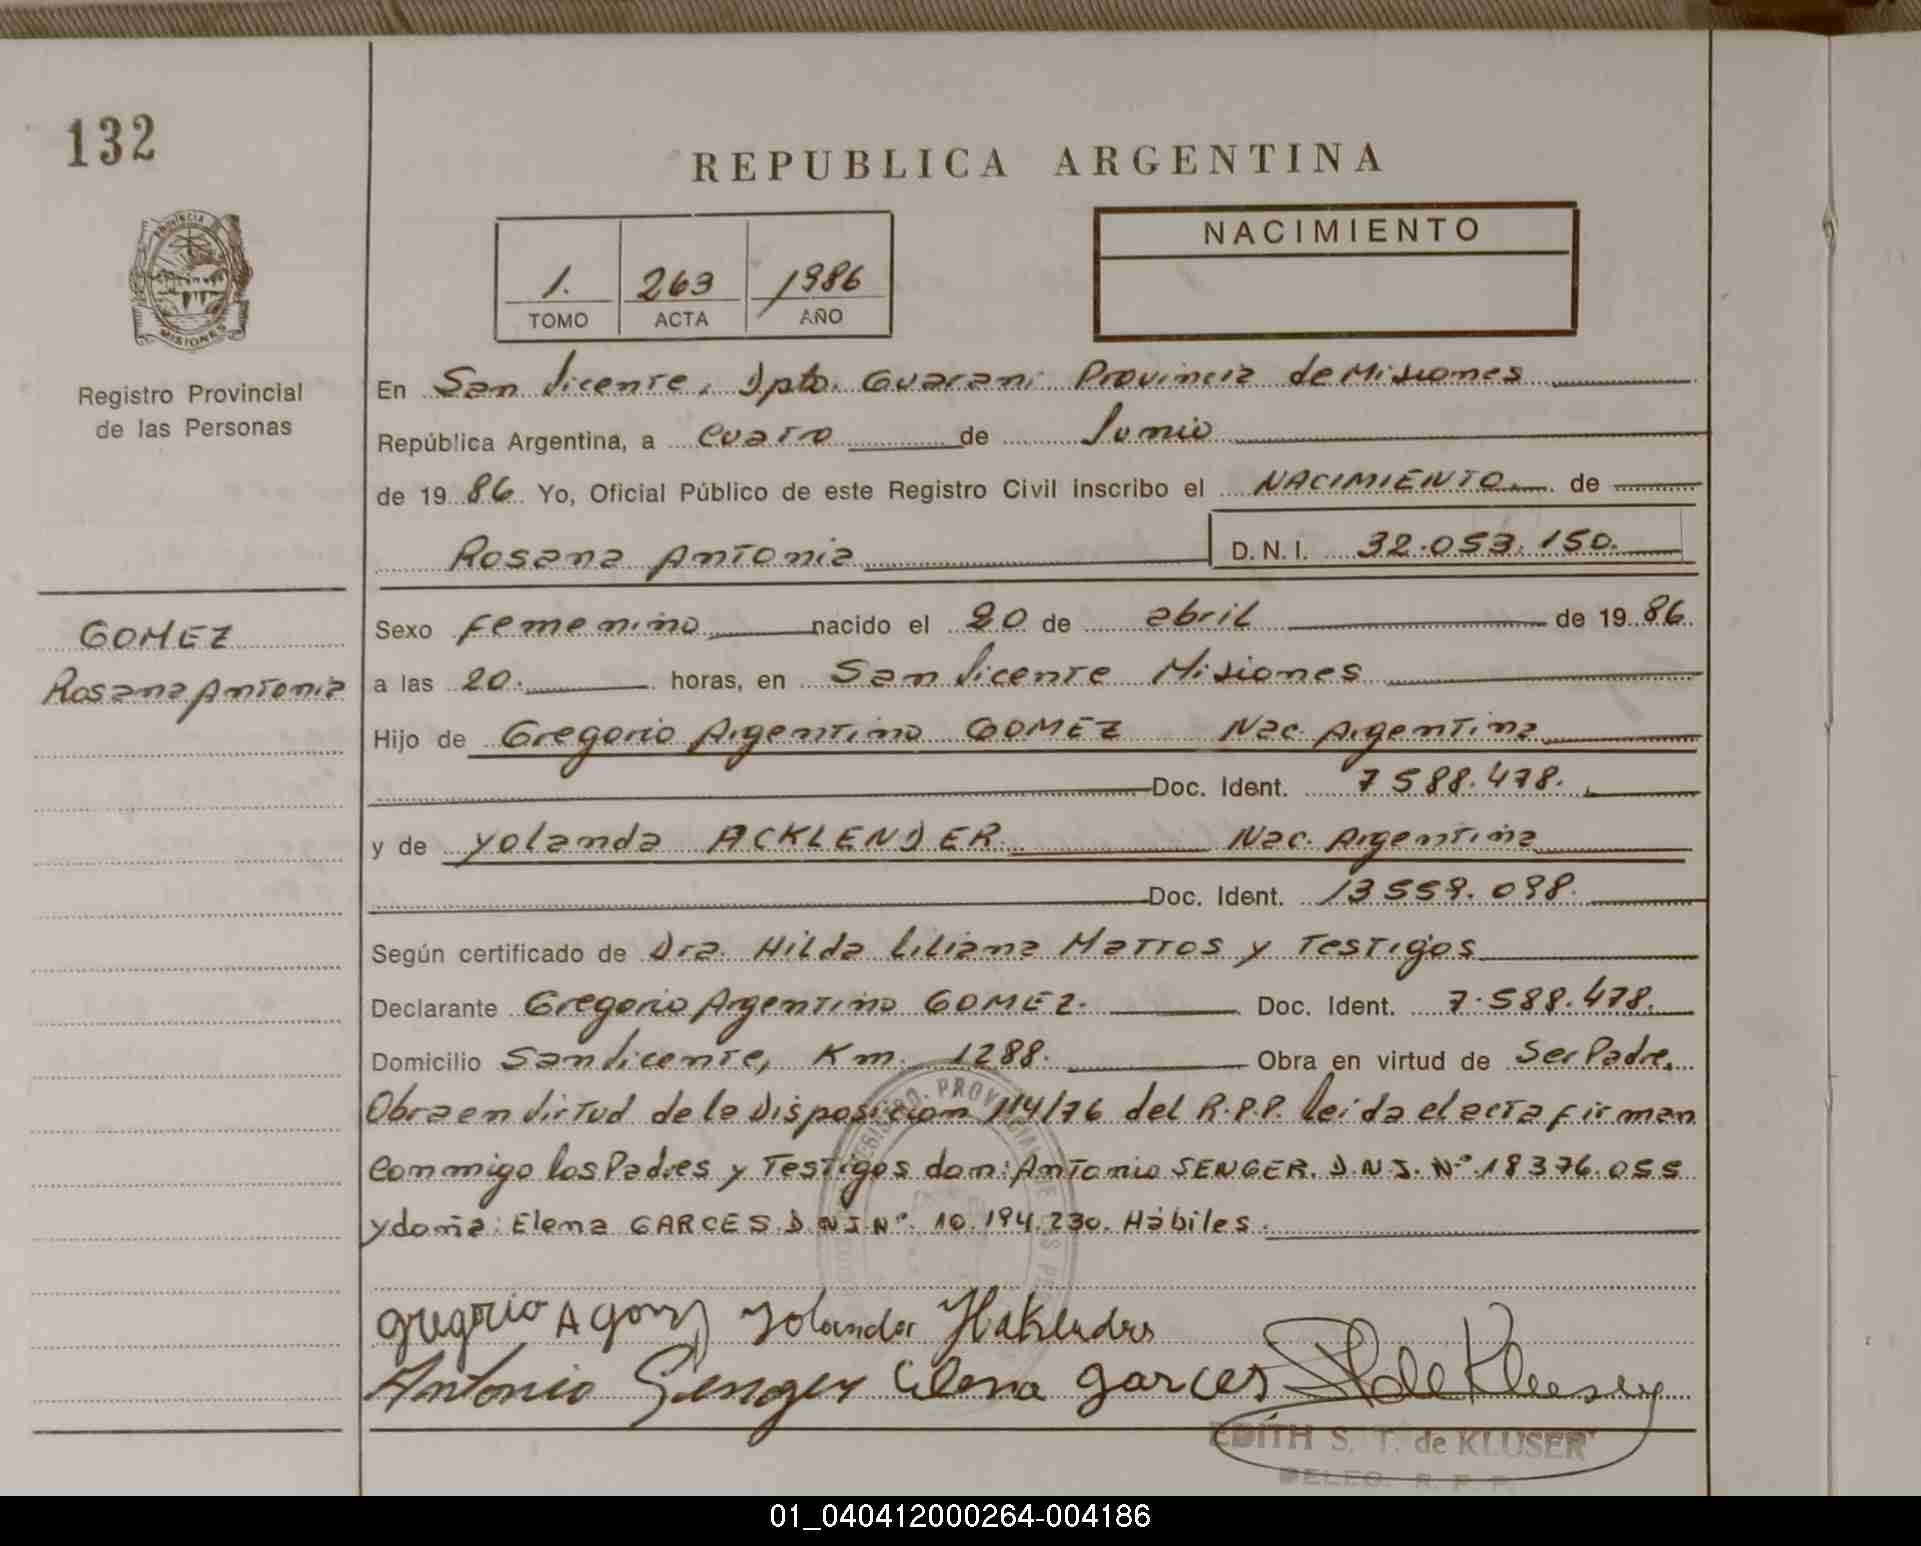 132
REPUBLICA ARGENTINA
NACIMIENTO
1. 263 1986
TOMO ACTA AÑO
PROVINCIA
MISIONES
Registro Provincial
de las Personas
En San Vicente, Dpto. Guarani Provincia de Misiones
República Argentina, a cuatro de Junio
de 1986 Yo, Oficial Público de este Registro Civil inscribo el NACIMIENTO. de
Rosana Antonia D. N. I. 32.053.150.
GOMEZ
Rosana Antonia
Sexo Femenino nacido el 20 de abril de 1986.
a las 20. horas, en San Vicente Misiones
Hijo de Gregorio Argentino GOMEZ Nac. Argentina
Doc. Ident. 7588.478.
y de Yolanda ACKLENDER. Nac. Argentina
Doc. Ident. 13559.098.
Según certificado de Dra. Hilda Liliana Mattos y Testigos
Declarante Gregorio Argentino GOMEZ. Doc. Ident. 7.588.478.
Domicilio San Vicente, Km. 1288. Obra en virtud de Ser Padre.
Obra en Virtud de la Disposicion 114/76 del R.P.P. leida el acta firman
conmigo los Padres y Testigos don: Antonio SENGER. D.N.I. Nº 18376.055
y doña: Elena GARCES. D.N.I. Nº. 10.194.230. Hábiles.
gregorio A gomz Yolanda Haklender
Antonio Senger Elena garces STdeKluser
EDITH S. T. de KLUSER
DELEG. R. P. P.
01_040412000264-004186